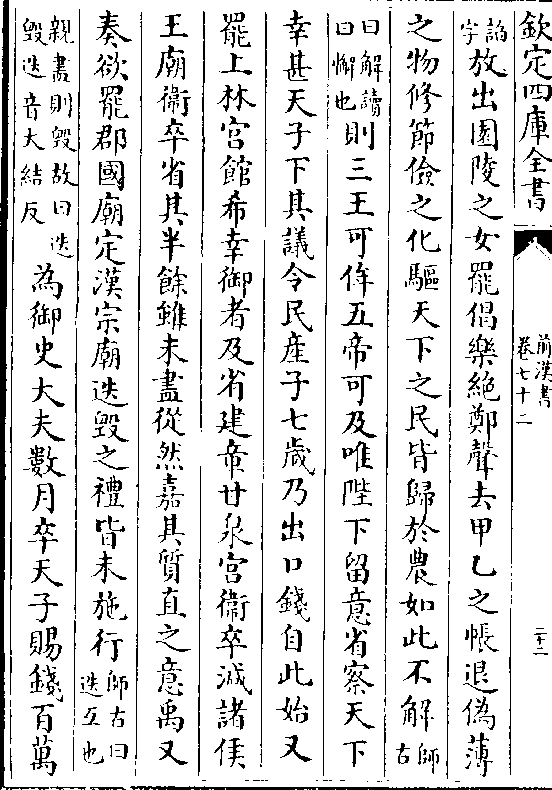 欽定四庫全書
前漢書
卷七十二
三十二
諂字放出園陵之女罷倡樂絶鄭聲去甲乙之帳退偽薄
之物修節儉之化驅天下之民皆歸於農如此不解師古
曰解讀曰懈也則三王可侔五帝可及唯陛下留意省察天下
幸甚天子下其議令民産子七歲乃出口錢自此始又
罷上林宮館希幸御者及省建章甘泉宮衞卒減諸侯
王廟衞卒省其半餘雖未盡從然嘉其質直之意禹又
奏欲罷郡國廟定漢宗廟迭毁之禮皆未施行師古曰迭互也
親盡則毁故曰迭毁迭音大結反為御史大夫數月卒天子賜錢百萬